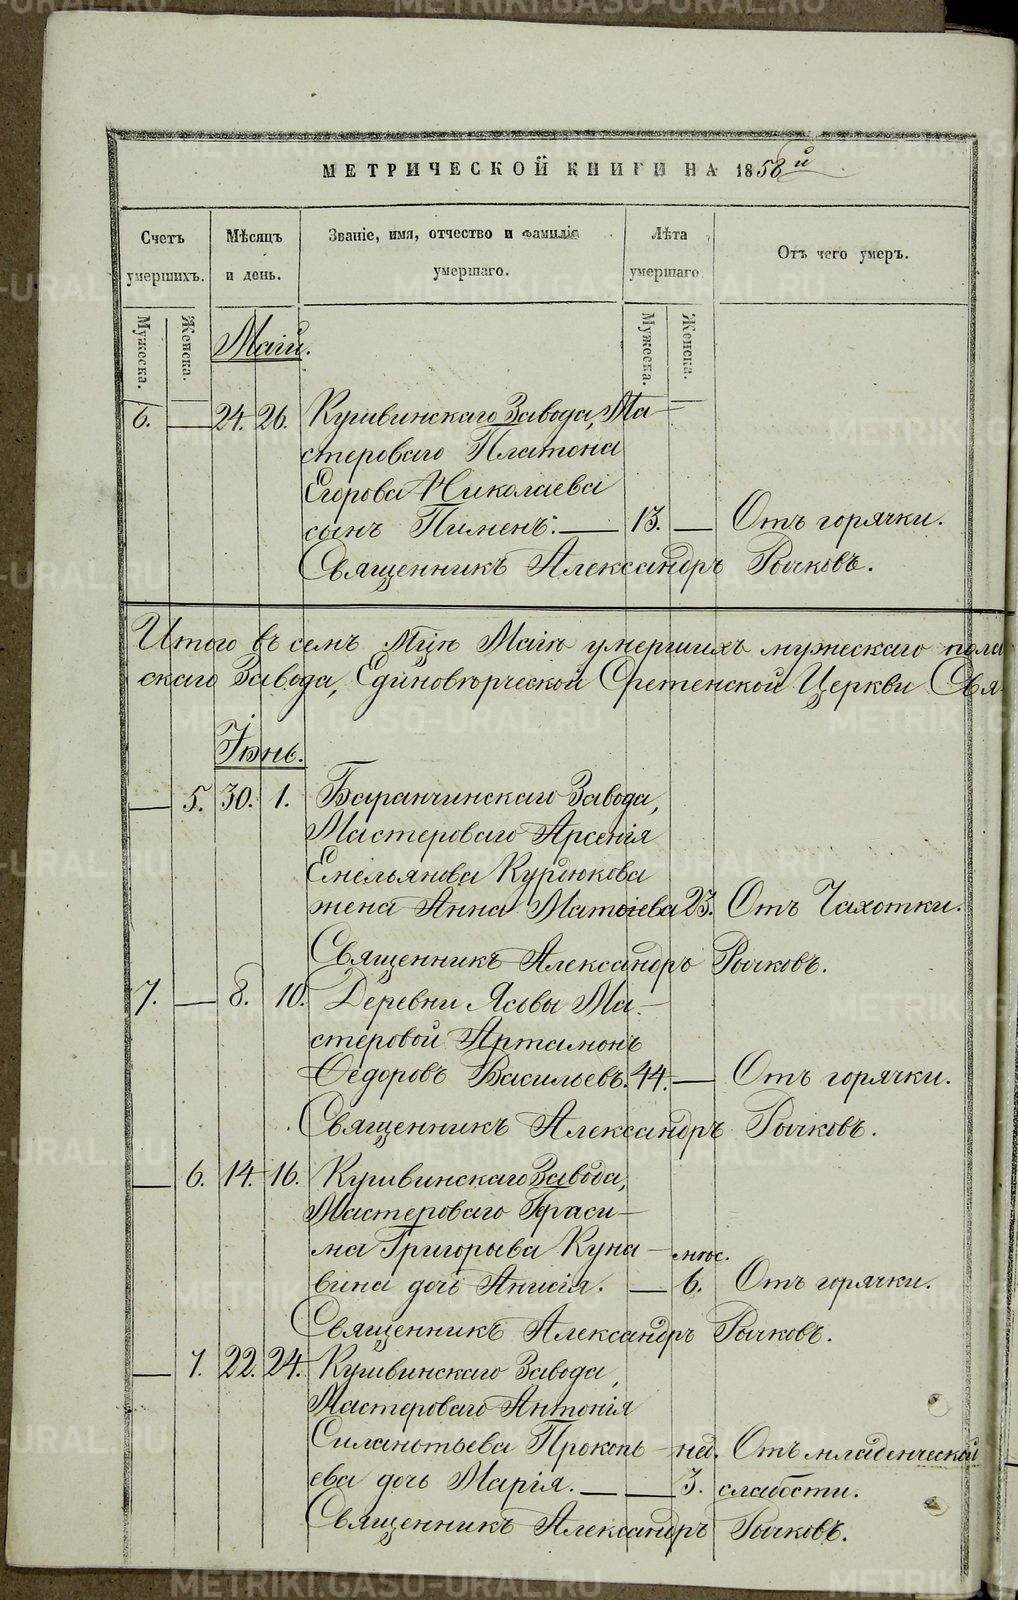 МЕТРИЧЕСКОЙ КНИГИ НА 1858й
Счетъ умершихъ.
Мѣсяцъ и день.
Званіе, имя, отчество и фамилія умершаго.
Лѣта умершаго
Отъ чего умеръ.
Мужеска.
Женска.
Мужеска.
Женска.
Маій.
6. — 24. 26. Кушвинскаго Завода, Ма-
стероваго Платона
Егорова Николаева
сынъ Пименъ. — 13. — Отъ горячки.
Священникъ Александръ Рычковъ.
Итого въ семъ Мцѣ Маіѣ умершихъ мужескаго пола
скаго Завода, Единовѣрческой Сретенской Церкви Свя
Іюнь.
— 5. 30. 1. Баранчинскаго Завода,
Мастероваго Арсенія
Емельянова Курдюкова
жена Анна Матѳіева 23. Отъ Чахотки.
Священникъ Александръ Рычковъ.
7. — 8. 10. Деревни Ясьвы Ма-
стеровой Артамонъ
Ѳедоровъ Васильевъ. 44. — Отъ горячки.
Священникъ Александръ Рычковъ.
— 6. 14. 16. Кушвинскаго Завода,
Мастероваго Гераси-
ма Григорьева Куна- мѣс.
вина дочь Анисія. — 6. Отъ горячки.
Священникъ Александръ Рычковъ.
— 7. 22. 24. Кушвинскаго Завода,
Мастероваго Антонія
Силанотьева Прокопь- нед. Отъ младенческой
ева дочь Марія. — — 3. слабости.
Священникъ Александръ Рычковъ.
METRIKI.GASO-URAL.RU